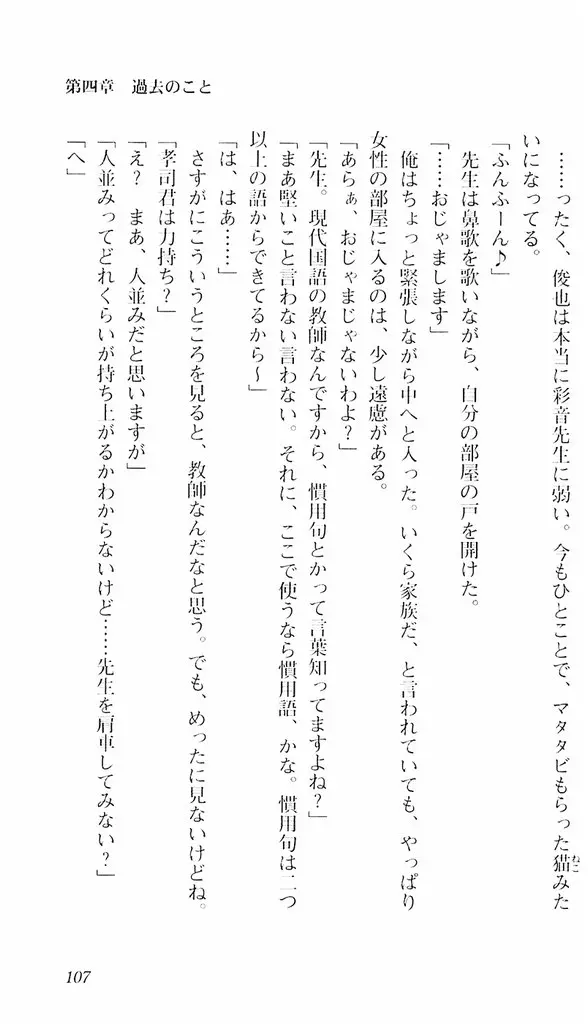 第四章　過去のこと
……ったく、俊也は本当に彩音先生に弱い。今もひとことで、マタタビもらった猫みた
ねこ
いになってる。
「ふんふーん♪」
先生は鼻歌を歌いながら、自分の部屋の戸を開けた。
「……おじゃまします」
俺はちょっと緊張しながら中へと入った。いくら家族だ、と言われていても、やっぱり
女性の部屋に入るのは、少し遠慮がある。
「あらぁ、おじゃまじゃないわよ？」
「先生。現代国語の教師なんですから、慣用句とかって言葉知ってますよね？」
「まあ堅いこと言わない言わない。それに、ここで使うなら慣用語、かな。慣用句は二つ
以上の語からできてるから～」
「は、はあ……」
さすがにこういうところを見ると、教師なんだなと思う。でも、めったに見ないけどね。
「孝司君は力持ち？」
「え？　まあ、人並みだと思いますが」
「人並みってどれくらいが持ち上がるかわからないけど……先生を肩車してみない？」
「へ」
107